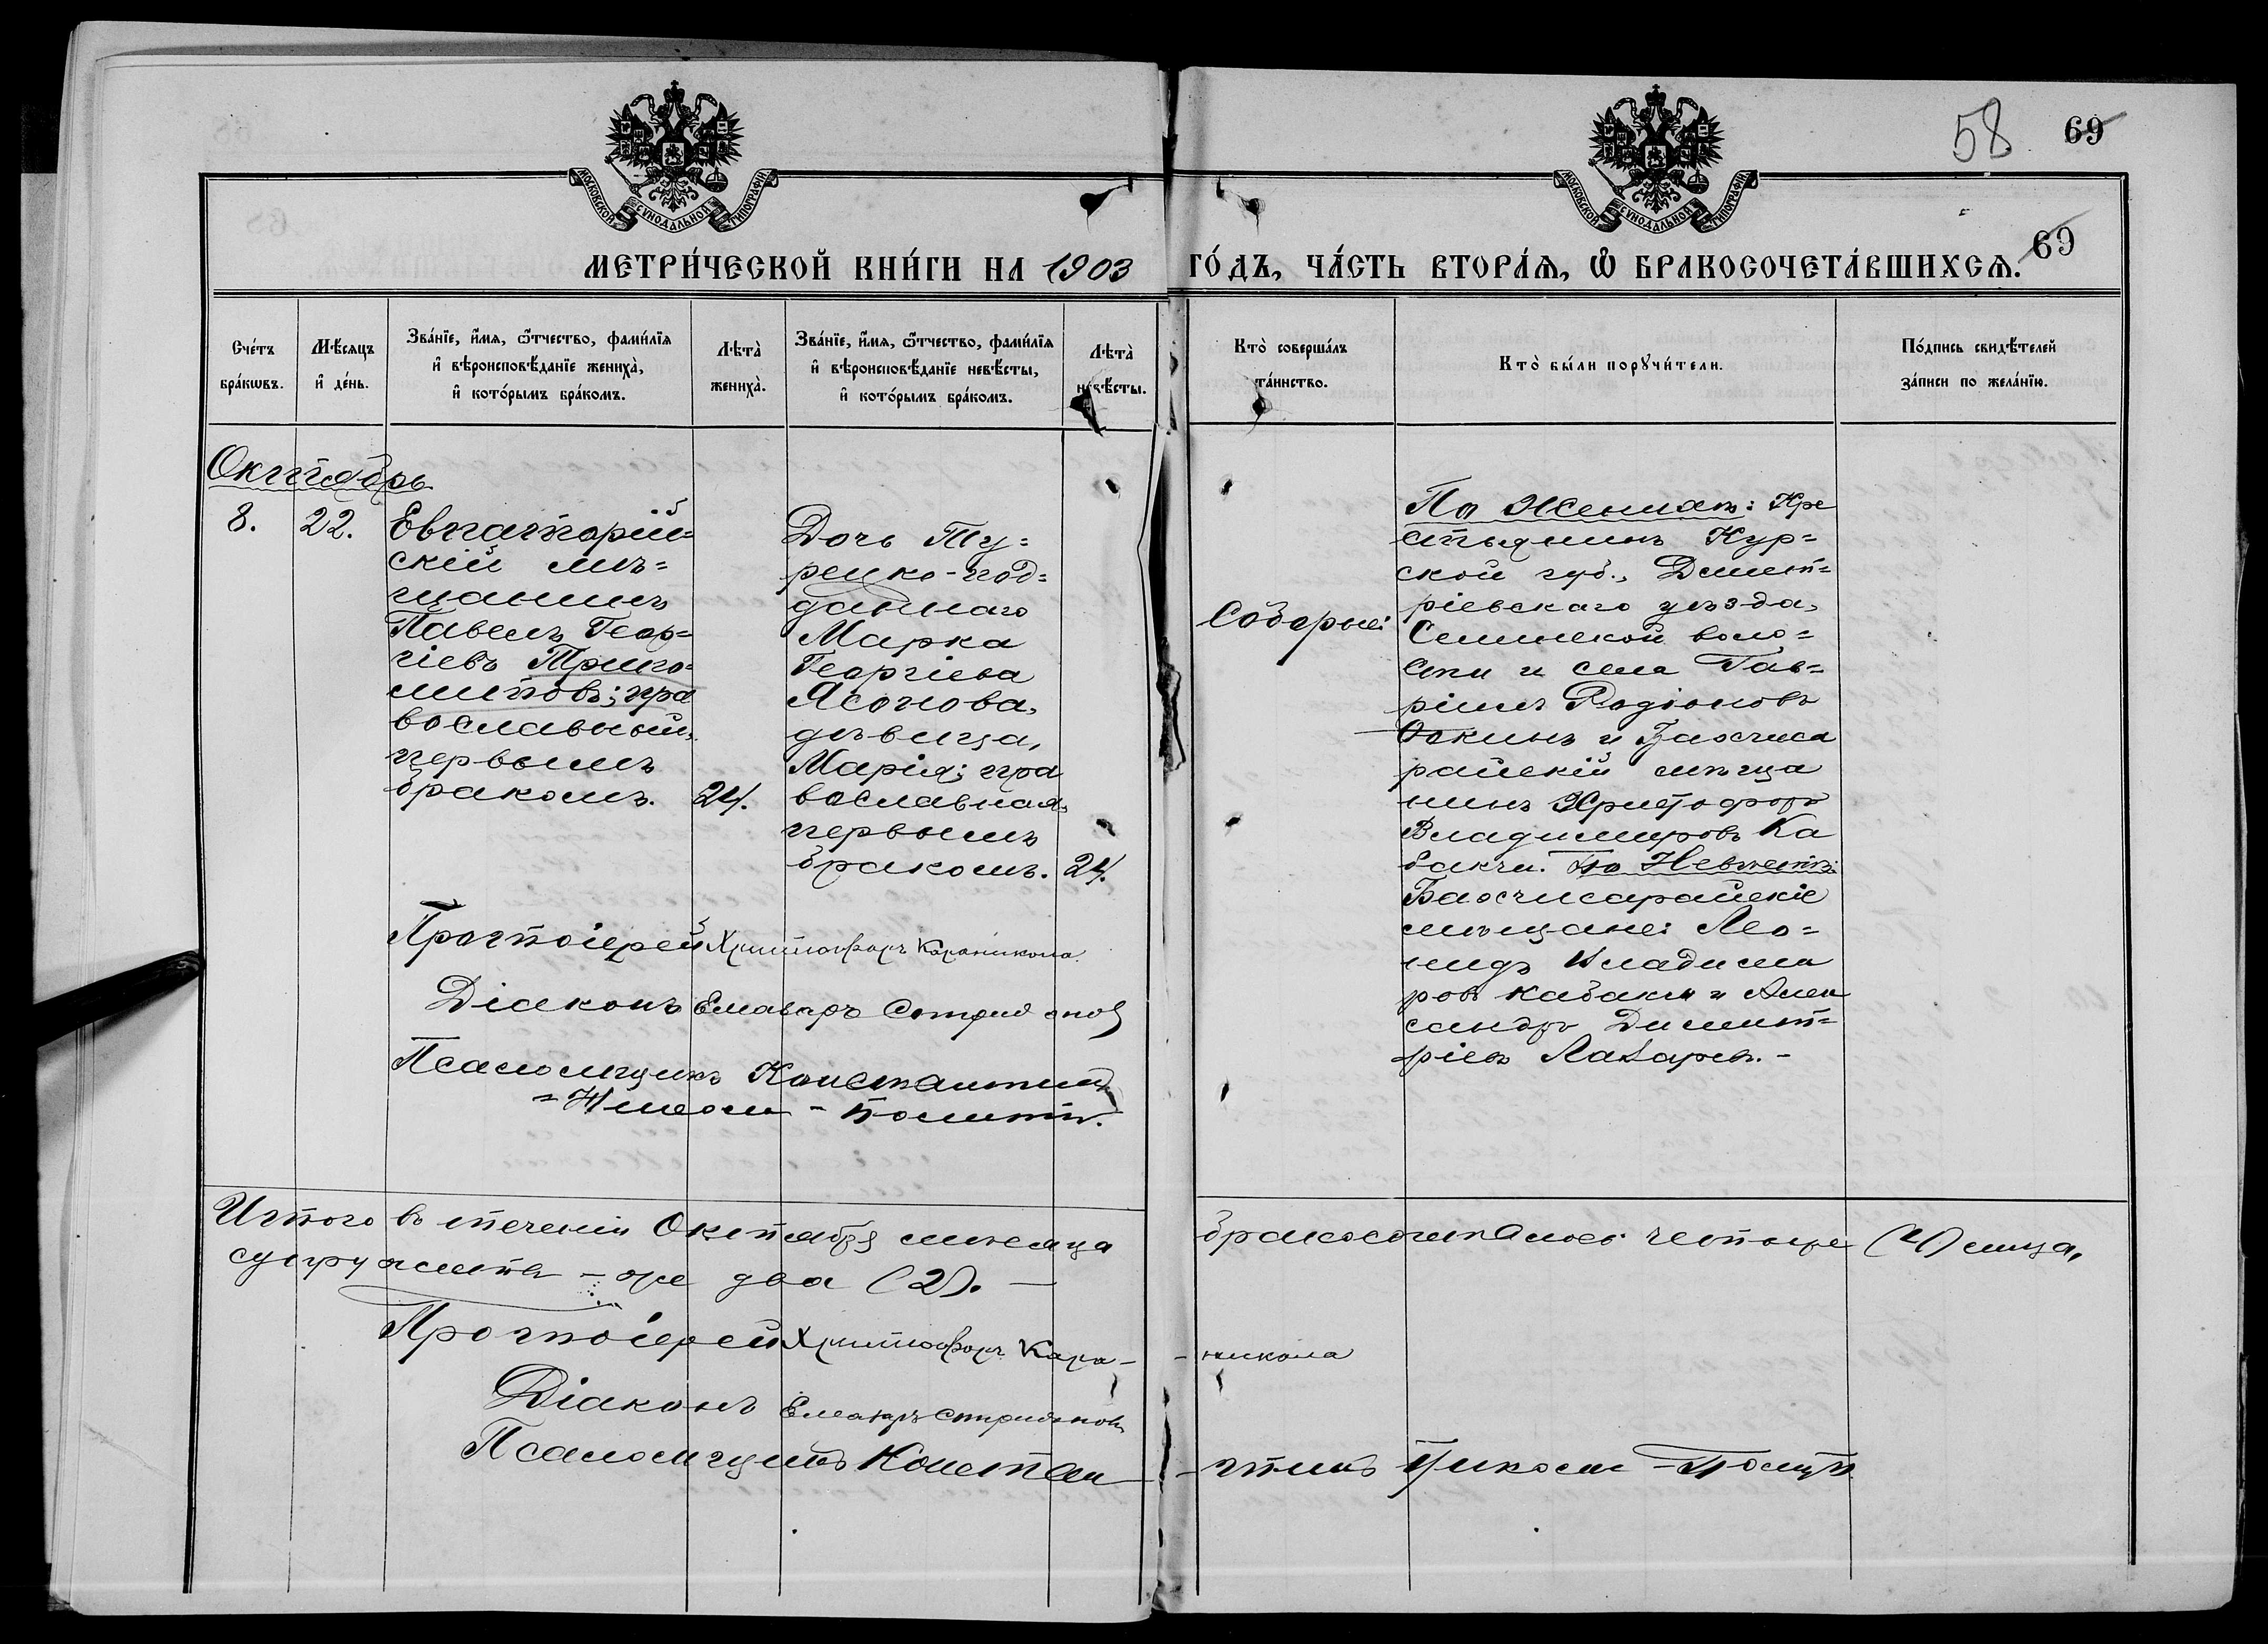 58 69
МОСКОВСКОЙ СѴНОДАЛЬНОЙ ТИПОГРАФІИ
МОСКОВСКОЙ СѴНОДАЛЬНОЙ ТИПОГРАФІИ
69
МЕТРИ́ЧЕСКОЙ КНИ́ГИ НА 1903 ГО́ДЪ, ЧА́СТЬ ВТОРА́Ѧ, Ѡ҆ БРАКОСОЧЕТА́ВШИХСѦ.
Сче́тъ бра́кѡвъ.
Мѣ́сяцъ и҆ де́нь.
Зва́нїе, и҆́мя, ѻ҆́тчество, фами́лїя и҆ вѣроисповѣ́данїе жениха̀, и҆ кото́рымъ бра́комъ.
Лѣта̀ жениха̀.
Зва́нїе, и҆́мя, ѻ҆́тчество, фами́лїя и҆ вѣроисповѣ́данїе невѣ́сты, и҆ кото́рымъ бра́комъ.
Лѣта̀ невѣ́сты.
Кто̀ соверша́лъ та́инство.
Кто̀ бы́ли порꙋчи́тели.
По́дпись свидѣ́телей за́писи по жела́нїю.
Октябрь
8.
22.
Евпаторій=
скій мѣ=
щанинъ
Павелъ Геор=
гіевъ Трико-
митовъ; пра
вославный,
первымъ
бракомъ.
24.
Дочь Ту=
рецко-под=
даннаго
Марка
Георгіева
Ясонова,
дѣвица,
Марія; пра
вославная,
первымъ
бракомъ.
24.
Соборне:
По Женихѣ: Кре
стьянинъ Кур=
ской губ., Дмит=
ріевскаго уѣзда,
воло=
сти и села Гав=
ріилъ Родіоновъ
и Бахчиса
райскій мѣща
нинъ Христофоръ
Владимировъ Ка
бакчи. По Невѣстѣ:
Бахчисарайскіе
мѣщане: Лео=
нидъ Владими
ровъ Кабакчи и Алек
сандръ Димит=
ріевъ Лазаревъ.-
Протоіерей Христофоръ Караникола
Діаконъ Елевѳеръ Спиридоновъ
Псаломщикъ Константинъ
=Николи - Полити.
Итого въ теченіи Октября мѣсяца бракосочеталось четыре (4) лица,
супружествъ - же два (2). —
Протоіерей Христофоръ Кара- -никола
Діаконъ Елевѳеръ Спиридоновъ
Псаломщикъ Констан- -тинъ Николи - Полити